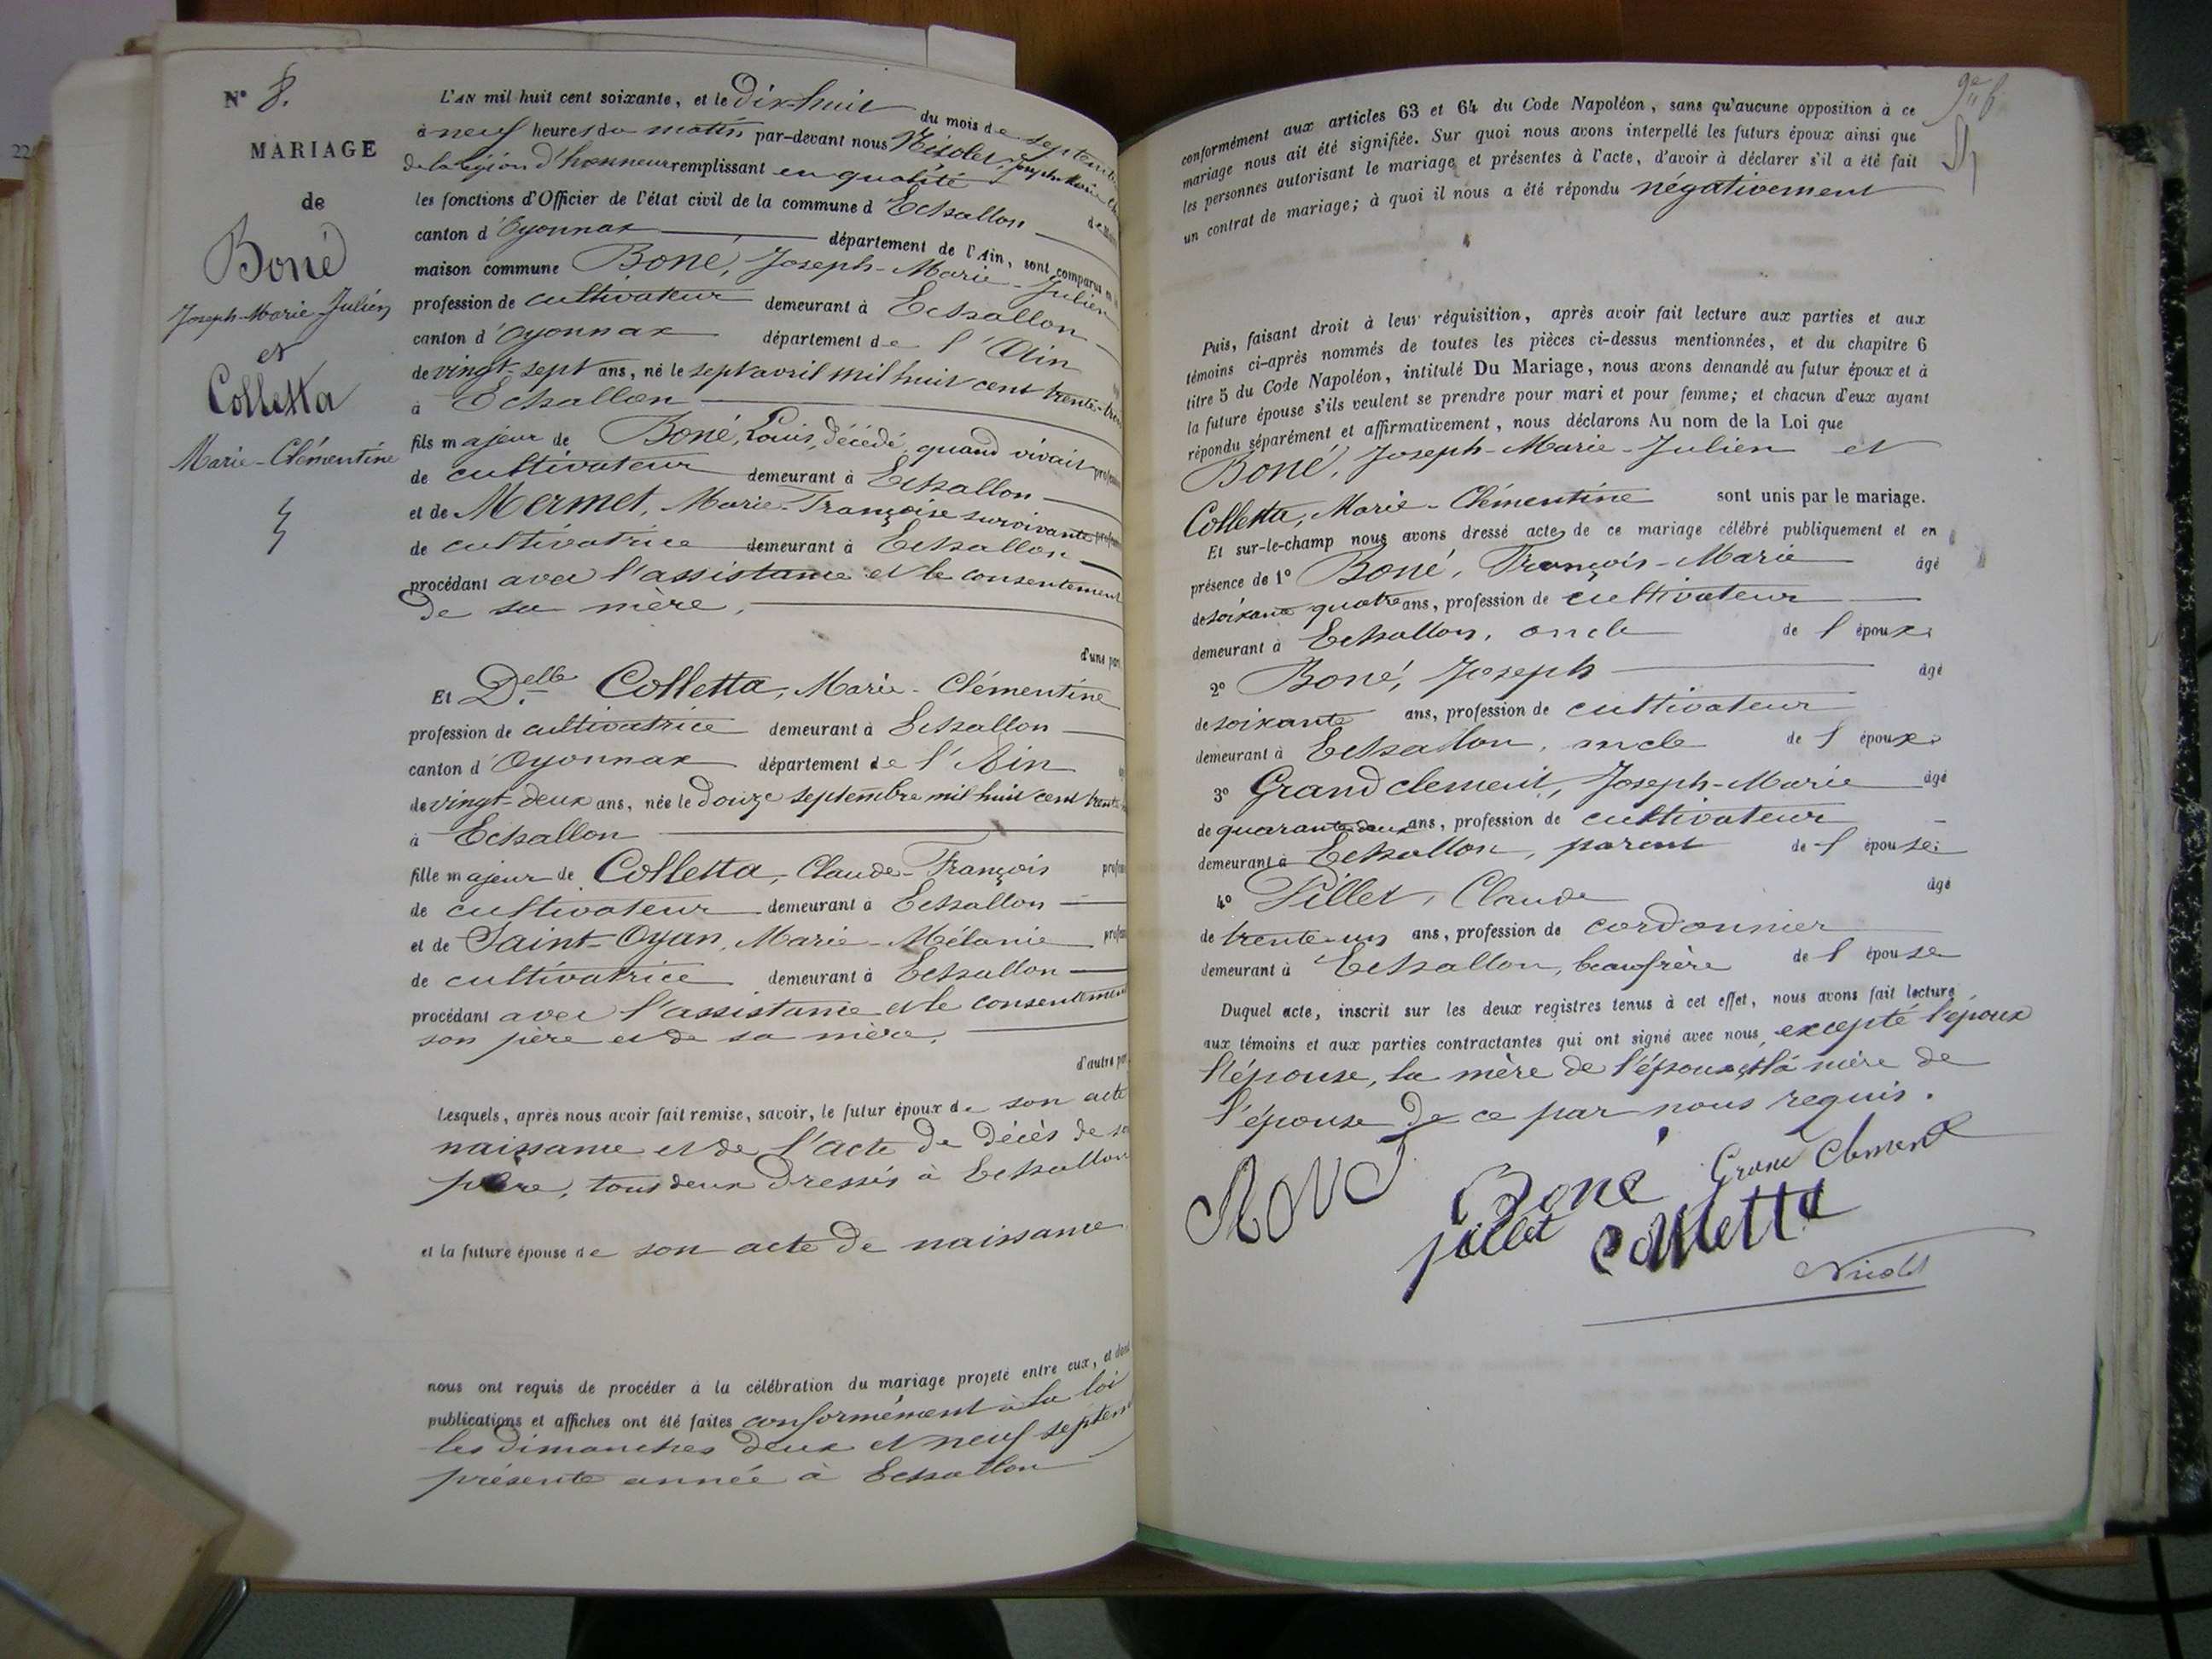 22
N° 8.
MARIAGE
de
Boné
Joseph-Marie-Julien
et
Colletta
Marie-Clémentine
L'AN mil huit cent soixante, et le Dix-huit du mois de septem
à neuf heures du matin par-devant nous Nicolet, Joseph Marie
de la légion d'honneur remplissant en qualité de
les fonctions d'Officier de l'état civil de la commune d Echallon
canton d'Oyonnax département de l'Ain, sont comparus en la
maison commune Boné, Joseph-Marie-Julien
profession de cultivateur demeurant à Echallon
canton d'Oyonnax département de l'Ain
de vingt-sept ans, né le sept avril mil huit cent trente-trois
à Echallon
fils majeur de Boné, Louis, décédé, quand vivait profession
de cultivateur demeurant à Echallon
et de Mermet, Marie-Françoise survivante profession
de cultivatrice demeurant à Echallon
procédant avec l'assistance et le consentement
de sa mère,
d'une part,
Et Delle Colletta, Marie-Clémentine
profession de cultivatrice demeurant à Echallon
canton d'Oyonnax département de l'Ain
de vingt-deux ans, née le douze septembre mil huit cent trente
à Echallon
fille majeur de Colletta, Claude-François profes
de cultivateur demeurant à Echallon
et de Saint-Oyan, Marie-Mélanie profes
de cultivatrice demeurant à Echallon
procédant avec l'assistance et le consentement
son père et de sa mère,
d'autre part
Lesquels, après nous avoir fait remise, savoir, le futur époux de son acte
naissance et de l'acte de décès de so
père, tous deux dressés à Echallon
et la future épouse de son acte de naissance
nous ont requis de procéder à la célébration du mariage projeté entre eux, et dont
publications et affiches ont été faites conformément à la loi
les dimanches deux et neuf septem
présente année à Echallon
conformément aux articles 63 et 64 du Code Napoléon, sans qu'aucune opposition à ce
mariage nous ait été signifiée. Sur quoi nous avons interpellé les futurs époux ainsi que
les personnes autorisant le mariage et présentes à l'acte, d'avoir à déclarer s'il a été fait
un contrat de mariage; à quoi il nous a été répondu négativement
Puis, faisant droit à leur réquisition, après avoir fait lecture aux parties et aux
témoins ci-après nommés de toutes les pièces ci-dessus mentionnées, et du chapitre 6
titre 5 du Code Napoléon, intitulé Du Mariage, nous avons demandé au futur époux et à
la future épouse s'ils veulent se prendre pour mari et pour femme; et chacun d'eux ayant
répondu séparément et affirmativement, nous déclarons Au nom de la Loi que
Boné, Joseph-Marie-Julien et
Colletta, Marie-Clémentine sont unis par le mariage.
Et sur-le-champ nous avons dressé acte de ce mariage célébré publiquement et en
présence de 1° Boné, François-Marie âgé
de soixante quatre ans, profession de cultivateur
demeurant à Echallon, oncle de l'époux
2° Boné, Joseph âgé
de soixante ans, profession de cultivateur
demeurant à Echallon, oncle de l'époux
3° Grandclement, Joseph-Marie âgé
de quarante-deux ans, profession de cultivateur
demeurant à Echallon, parent de l'épouse;
4° Pillet, Claude âgé
de trente-un ans, profession de cordonnier
demeurant à Echallon, beaufrère de l'épouse
Duquel acte, inscrit sur les deux registres tenus à cet effet, nous avons fait lecture
aux témoins et aux parties contractantes qui ont signé avec nous, excepté l'époux
l'épouse, la mère de l'époux et la mère de
l'épouse de ce par nous requis.
Boné Boné Grand Clement
pillet colletta
Nicolet